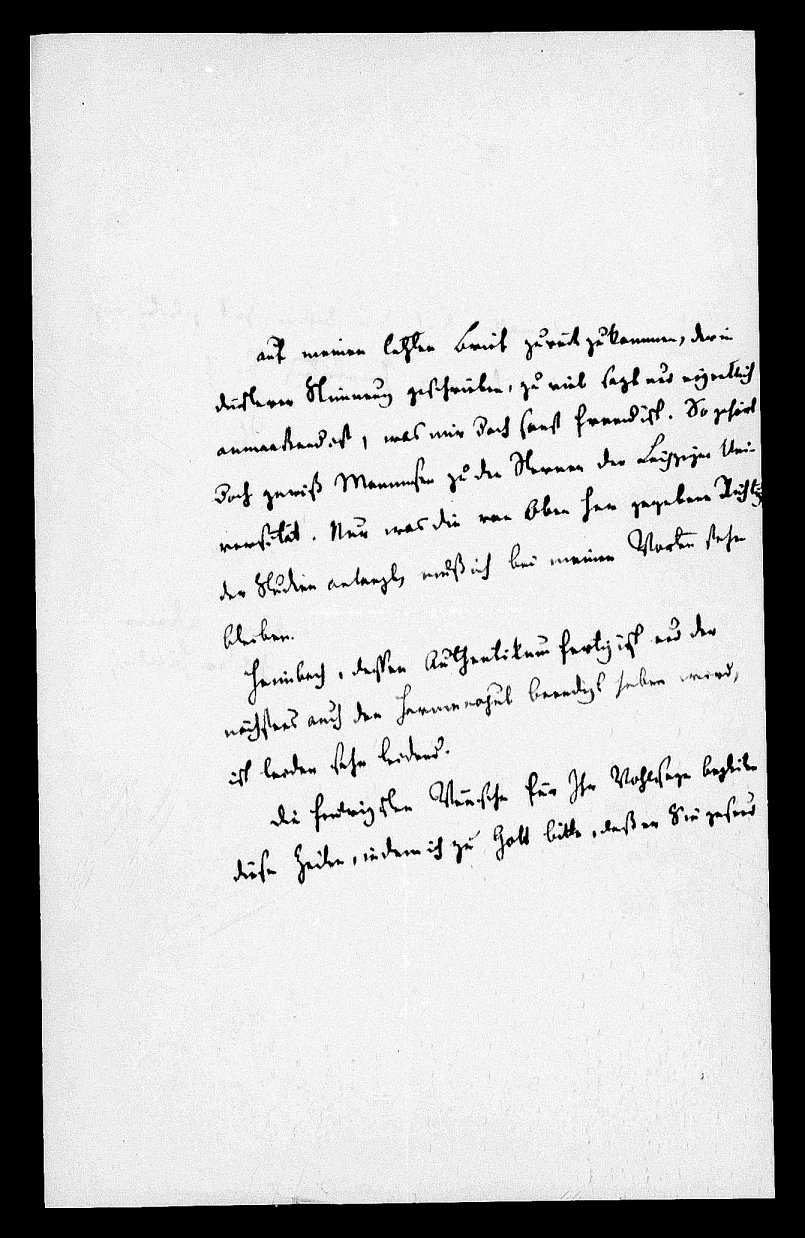 auf meinen letzten Brief zurück zu kommen, der in
düsterer Stimmung geschrieben, zu viel sagt und eigentlich
anmaaßend ist, was mir doch sonst fremd ist. So gehört
doch gewiß Mommsen zu den Sternen der Leipziger Uni-
versität. Nur was die von Oben her gegebene Richtg
der Studien anlangt, muß ich bei meinen Worten stehn
bleiben.
Heimbach, dessen Authentikum fertig ist und der
nächstens auch den Harmenopul beendigt haben wird,
ist leider sehr leidend.
Die feurigsten Wünsche für Ihr Wohlseyn begleiten
diese Zeilen, indem ich zu Gott bitte, daß er Sie gesund